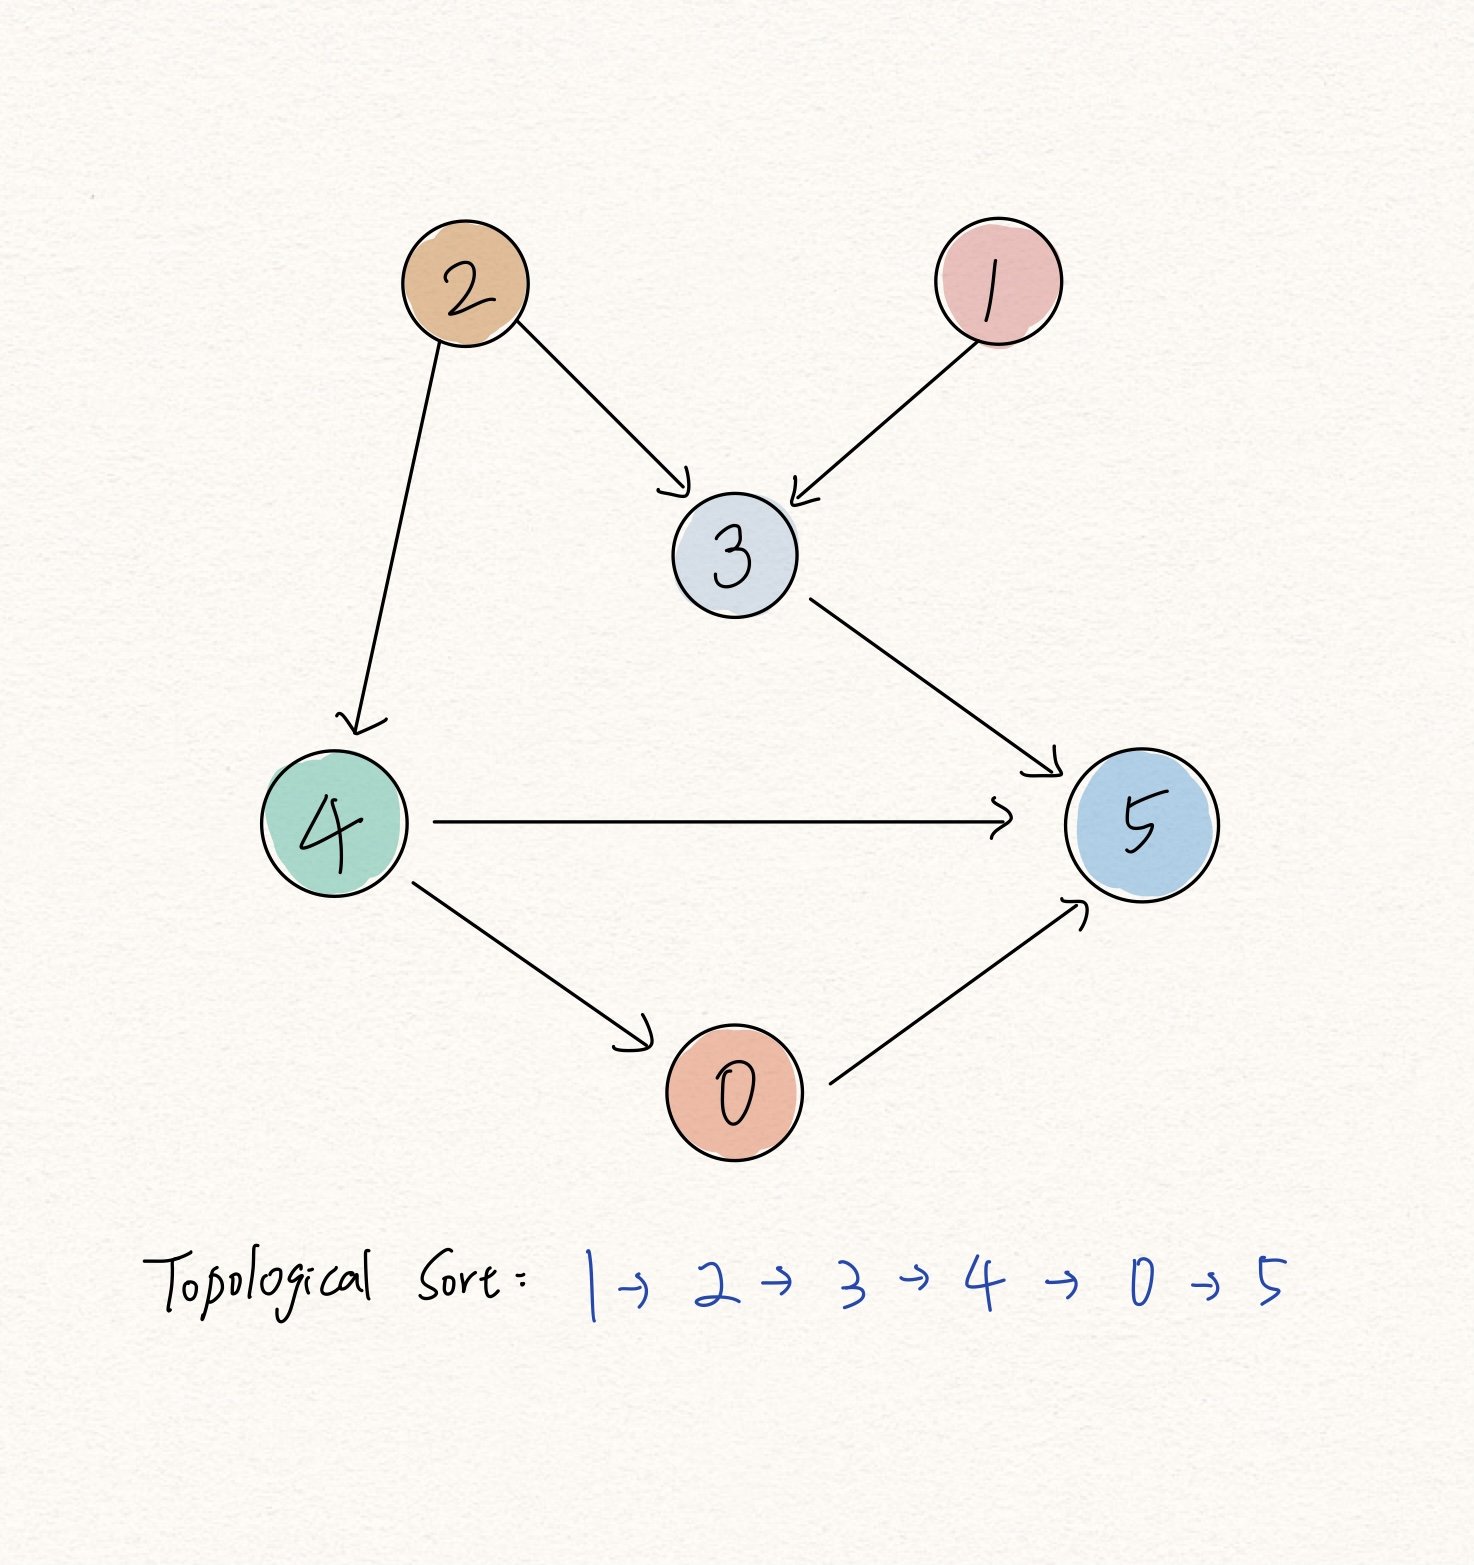 2
1
3
4
5
0
Topological Sort: 1 → 2 → 3 → 4 → 0 → 5